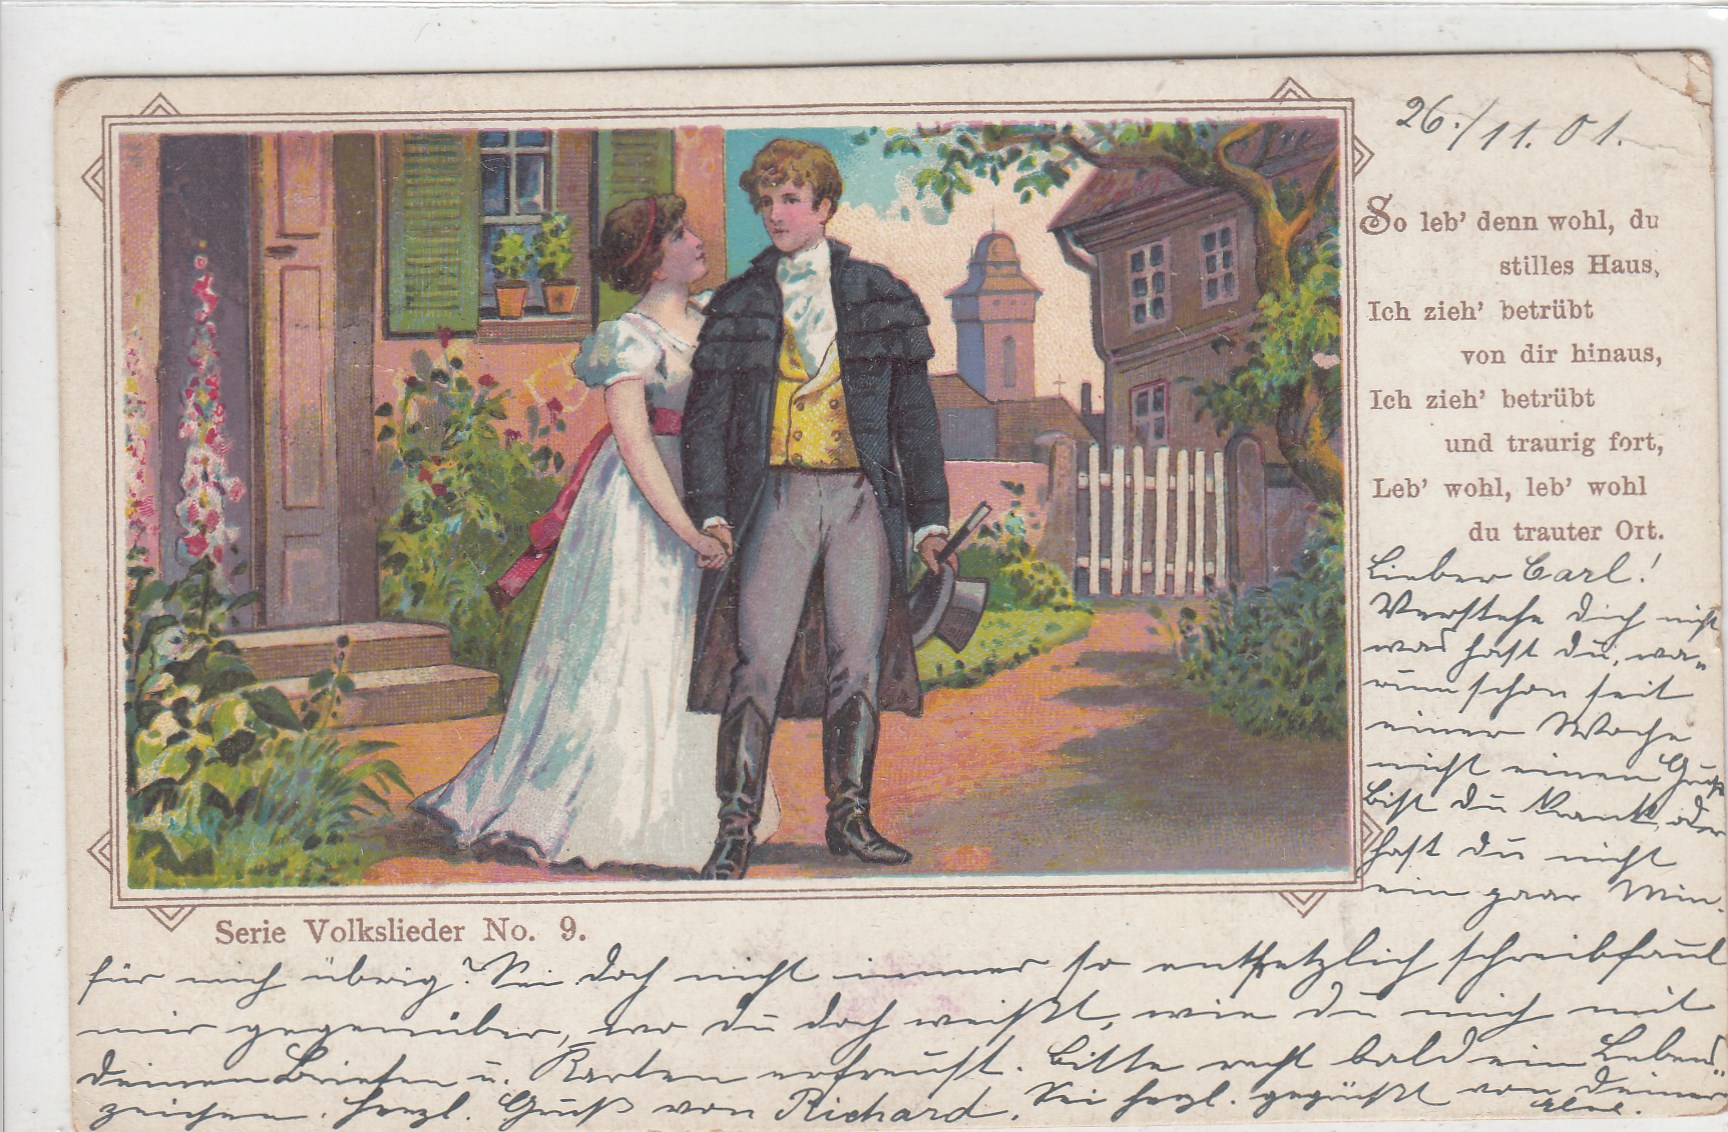 26./11.01.
So leb' denn wohl, du
stilles Haus,
Ich zieh' betrübt
von dir hinaus,
Ich zieh' betrübt
und traurig fort,
Leb' wohl, leb' wohl
du trauter Ort.
Lieber Carl!
Verstehe Dich nicht
was hast Du, wa„
rum schon seit
einer Woche
nicht einen Gruß
Bist Du krank, oder
hast Du nicht
ein paar Min.
Serie Volkslieder No. 9.
für mich übrig? Sei doch nicht immer so entsetzlich schreibfaul
mir gegenüber, wo du doch weißt, wie Du mich mit
deinen Briefen u. Karten erfreust. Bitte recht bald ein Lebens„
zeichen. Herzl. Gruß von Richard. Sei herzl. gegrüßt von Deiner